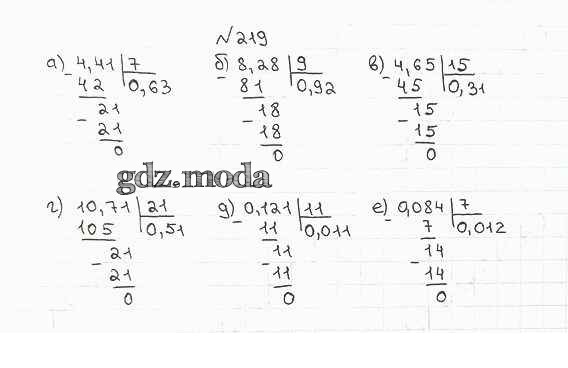 №219
а) 4,41 | 7 б) 8,28 | 9 в) 4,65 | 15
- 42 0,63 - 81 0,92 - 45 0,31
21 18 15
- 21 - 18 - 15
0 0 0
gdz.moda
г) 10,71 | 21 д) 0,121 | 11 е) 0,084 | 7
105 0,51 - 11 0,011 - 7 0,012
21 11 14
- 21 - 11 - 14
0 0 0